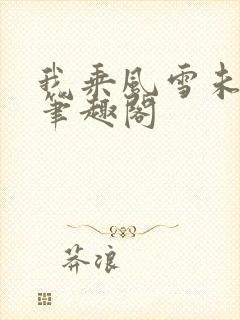 我乘风雪未
笔趣阁
莽浪